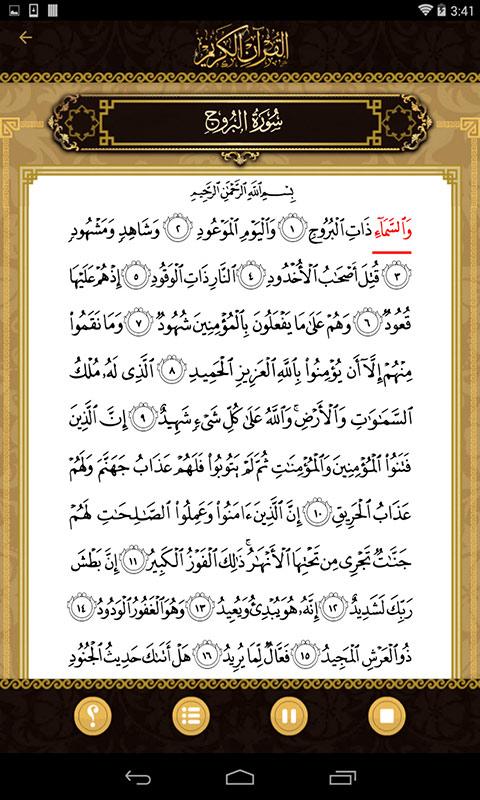 3:41
القرآن الكريم
سُورَةُ الْبُرُوجِ
بِسْمِ اللَّهِ الرَّحْمَٰنِ الرَّحِيمِ
وَالسَّمَاءِ ذَاتِ الْبُرُوجِ ١ وَالْيَوْمِ الْمَوْعُودِ ٢ وَشَاهِدٍ وَمَشْهُودٍ
٣ قُتِلَ أَصْحَابُ الْأُخْدُودِ ٤ النَّارِ ذَاتِ الْوَقُودِ ٥ إِذْ هُمْ عَلَيْهَا
قُعُودٌ ٦ وَهُمْ عَلَىٰ مَا يَفْعَلُونَ بِالْمُؤْمِنِينَ شُهُودٌ ٧ وَمَا نَقَمُوا
مِنْهُمْ إِلَّا أَن يُؤْمِنُوا بِاللَّهِ الْعَزِيزِ الْحَمِيدِ ٨ الَّذِي لَهُ مُلْكُ
السَّمَاوَاتِ وَالْأَرْضِ ۚ وَاللَّهُ عَلَىٰ كُلِّ شَيْءٍ شَهِيدٌ ٩ إِنَّ الَّذِينَ
فَتَنُوا الْمُؤْمِنِينَ وَالْمُؤْمِنَاتِ ثُمَّ لَمْ يَتُوبُوا فَلَهُمْ عَذَابُ جَهَنَّمَ وَلَهُمْ
عَذَابُ الْحَرِيقِ ١٠ إِنَّ الَّذِينَ ءَامَنُوا وَعَمِلُوا الصَّالِحَاتِ لَهُمْ
جَنَّاتٌ تَجْرِي مِن تَحْتِهَا الْأَنْهَارُ ۚ ذَٰلِكَ الْفَوْزُ الْكَبِيرُ ١١ إِنَّ بَطْشَ
رَبِّكَ لَشَدِيدٌ ١٢ إِنَّهُ هُوَ يُبْدِئُ وَيُعِيدُ ١٣ وَهُوَ الْغَفُورُ الْوَدُودُ ١٤
ذُو الْعَرْشِ الْمَجِيدُ ١٥ فَعَّالٌ لِّمَا يُرِيدُ ١٦ هَلْ أَتَاكَ حَدِيثُ الْجُنُودِ
؟